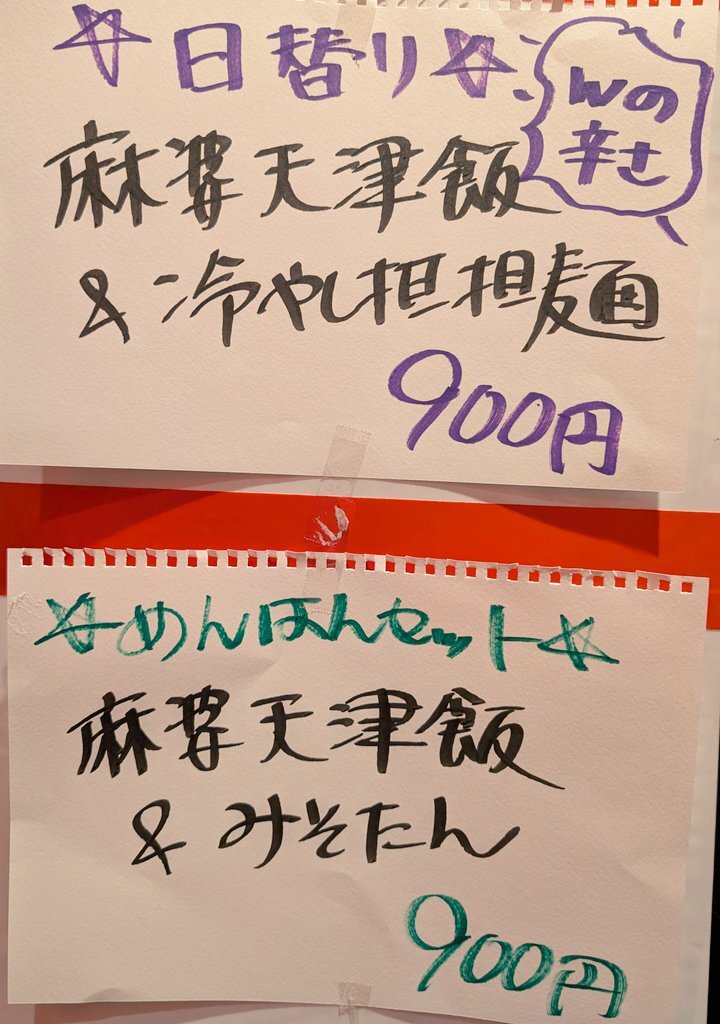 ☆日替り☆
Wの
辛さ
麻婆天津飯
&冷やし担担麺
900円
☆めんはんセット☆
麻婆天津飯
&みそたん
900円